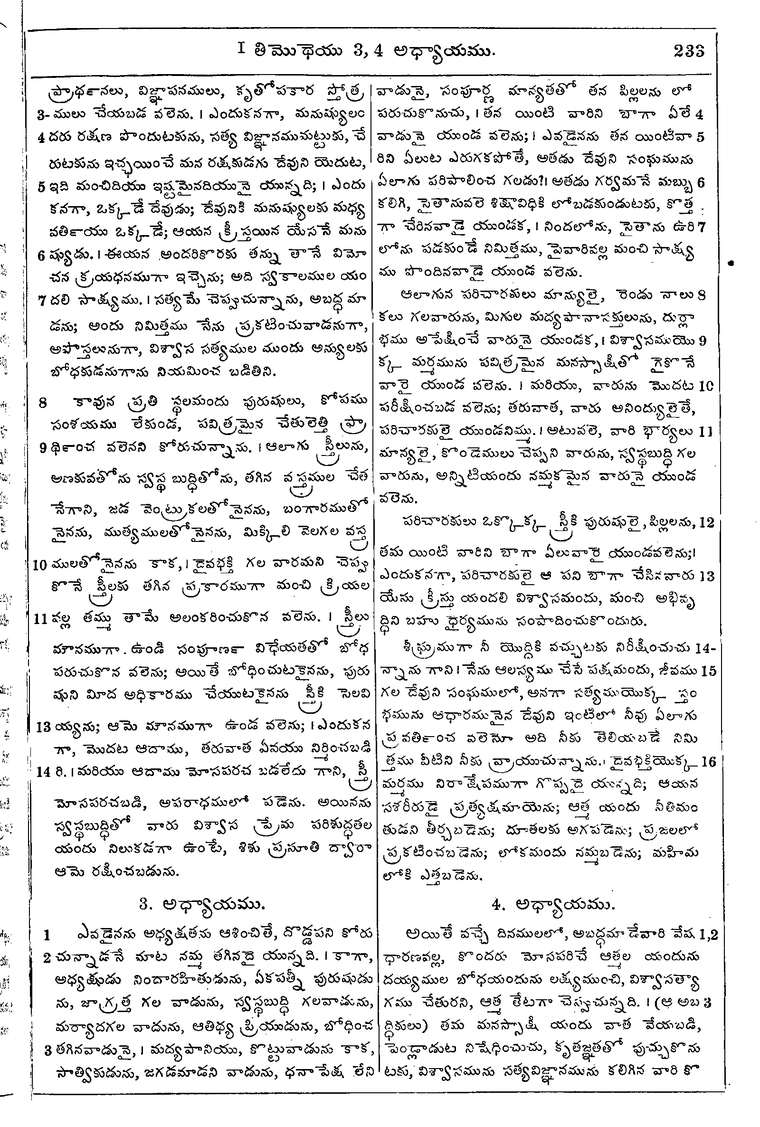 I తిమొథెయు 3, 4 అధ్యాయము. 233
ప్రార్థనలు, విజ్ఞాపనములు, కృతోపకార స్తోత్ర
3-ములు చేయబడ వలెను. । ఎందుకనగా, మనుష్యులం
4 దరు రక్షణ పొందుటకును, సత్య విజ్ఞానముచుట్టుకు, చే
రుటకును ఇచ్ఛయించే మన రక్షకుడను దేవుని యెదుట,
5 ఇది మంచిదియు ఇష్టమైనదియునై యున్నది; । ఎందు
కనగా, ఒక్కడే దేవుడు; దేవునికి మనుష్యులకు మధ్య
వర్తియు ఒక్కడే; ఆయన క్రీస్తయిన యేసనే మను
6 ష్యుడు. । ఈయన అందరికొరకు తన్ను తానే విమో
చన క్రయధనముగా ఇచ్చెను; అది స్వకాలముల యం
7 దలి సాక్ష్యము. । సత్యమే చెప్పుచున్నాను, అబద్ధ మా
డను; అందు నిమిత్తము నేను ప్రకటించువాడనుగా,
అపొస్తలునుగా, విశ్వాస సత్యముల ముందు అన్యులకు
బోధకుడనుగాను నియమించ బడితిని.
8 కావున ప్రతి స్థలమందు పురుషులు, కోపము
సంశయము లేకుండ, పవిత్రమైన చేతులెత్తి ప్రా
9 ర్థించ వలెనని కోరుచున్నాను. । ఆలాగు స్త్రీలును,
అణకువతోను స్వస్థ బుద్ధితోను, తగిన వస్త్రముల చేత
నేగాని, జడ వెంట్రుకలతోనైనను, బంగారముతో
నైనను, ముత్యములతోనైనను, మిక్కిలి వెలగల వస్త్ర
10 ములతోనైనను కాక, । దైవభక్తి గల వారమని చెప్పు
కొనే స్త్రీలకు తగిన ప్రకారముగా మంచి క్రియల
11 వల్ల తమ్ము తామే అలంకరించుకొన వలెను. । స్త్రీలు
మౌనముగా ఉండి సంపూర్ణ విధేయతతో బోధ
పరుచుకొన వలెను; అయితే బోధించుటకైనను, పురు
షుని మీద అధికారము చేయుటకైనను స్త్రీకి సెలవి
13 య్యను; ఆమె మౌనముగా ఉండ వలెను; । ఎందుకన
గా, మొదట ఆదాము, తరువాత ఏవయు నిర్మించబడి
14 రి. । మరియు ఆదాము మోసపరచ బడలేదు గాని, స్త్రీ
మోసపరచబడి, అపరాధములో పడెను. అయినను
స్వస్థబుద్ధితో వారు విశ్వాస ప్రేమ పరిశుద్ధతల
యందు నిలుకడగా ఉంటే, శిశు ప్రసూతి ద్వారా
ఆమె రక్షించబడును.
3. అధ్యాయము.
1 ఎవడైనను అధ్యక్షతను ఆశించితే, దొడ్డపని కోరు
2 చున్నాడనే మాట నమ్మ తగినదై యున్నది. । కాగా,
అధ్యక్షుడు నిందారహితుడును, ఏకపత్నీ పురుషుడు
ను, జాగ్రత్త గల వాడును, స్వస్థబుద్ధి గలవాడును,
మర్యాదగల వాదును, ఆతిథ్య ప్రియుదును, బోధించ
3 తగినవాడునై, । మద్యపానియు, కొట్టువాడును కాక,
సాత్వికుడును, జగడమాడని వాడును, ధనాపేక్ష లేని
వాడునై, సంపూర్ణ మాన్యతతో తన పిల్లలను లో
పరుచుకొనుచు, । తన యింటి వారిని బాగా ఏలే 4
వాడునై యుండ వలెను; । ఎవడైనను తన యింటివా 5
రిని ఏలుట ఎరుగకపోతే, అతడు దేవుని సంఘమును
ఏలాగు పరిపాలించ గలడు?। అతడు గర్వమనే మబ్బు 6
కలిగి, సైతానువలె శిక్షావిధికి లోబడకుండుటకు, కొత్త
గా చేరినవాడై యుండక, । నిందలోను, సైతాను ఉరి 7
లోను పడకుండే నిమిత్తము, పైవారివల్ల మంచి సాక్ష్య
ము పొందినవాడై యుండ వలెను.
ఆలాగున పరిచారకులు మాన్యులై, రెండు నాలు 8
కలు గలవారును, మిగుల మద్యపానాసక్తులును, దుర్లా
భము అపేక్షించే వారునై యుండక, । విశ్వాసముయొ 9
క్క మర్మమును పవిత్రమైన మనస్సాక్షితో గైకొనే
వారై యుండ వలెను. । మరియు, వారును మొదట 10
పరీక్షించబడ వలెను; తరువాత, వారు అనింద్యులైతే,
పరిచారకులై యుండనిమ్ము. । అటువలె, వారి భార్యలు 11
మాన్యులై, కొండెములు చెప్పని వారును, స్వస్థబుద్ధి గల
వారును, అన్నిటియందు నమ్మకమైన వారునై యుండ
వలెను.
పరిచారకులు ఒక్కొక్క స్త్రీకి పురుషులై, పిల్లలను, 12
తమ యింటి వారిని బాగా ఏలువారై యుండవలెను;।
ఎందుకనగా, పరిచారకులై ఆ పని బాగా చేసినవారు 13
యేసు క్రీస్తు యందలి విశ్వాసమందు, మంచి అభివృ
ద్ధిని బహు ధైర్యమును సంపాదించుకొందురు.
శీఘ్రముగా నీ యొద్దికి వచ్చుటకు నిరీక్షించుచు 14-
న్నాను గాని। నేను ఆలస్యము చేసే పక్షమందు, జీవము 15
గల దేవుని సంఘములో, అనగా సత్యముయొక్క స్తం
భమును ఆధారమునైన దేవుని ఇంటిలో నీవు ఏలాగు
ప్రవర్తించ వలెనో అది నీకు తెలియబడే నిమి
త్తము వీటిని నీకు వ్రాయుచున్నాను.। దైవభక్తియొక్క 16
మర్మము నిరాక్షేపముగా గొప్పదై యున్నది; ఆయన
సశరీరుడై ప్రత్యక్షమాయెను; ఆత్మ యందు నీతిమం
తుడని తీర్చబడెను; దూతలకు అగపడెను; ప్రజలలో
ప్రకటించబడెను; లోకమందు నమ్మబడెను; మహిమ
లోకి ఎత్తబడెను.
4. అధ్యాయము.
అయితే వచ్చే దినములలో, అబద్ధమాడేవారి వేష 1,2
ధారణవల్ల, కొందరు మోసపరిచే ఆత్మల యందును
దయ్యముల బోధయందును లక్ష్యముంచి, విశ్వాసత్యా
గము చేతురని, ఆత్మ తేటగా చెప్పుచున్నది. । (ఆ అబ 3
ద్ధికులు) తమ మనస్సాక్షి యందు వాత వేయబడి,
పెండ్లాడుట నిషేధించుచు, కృతజ్ఞతతో పుచ్చుకొను
టకు, విశ్వాసమును సత్యవిజ్ఞానమును కలిగిన వారి కొ